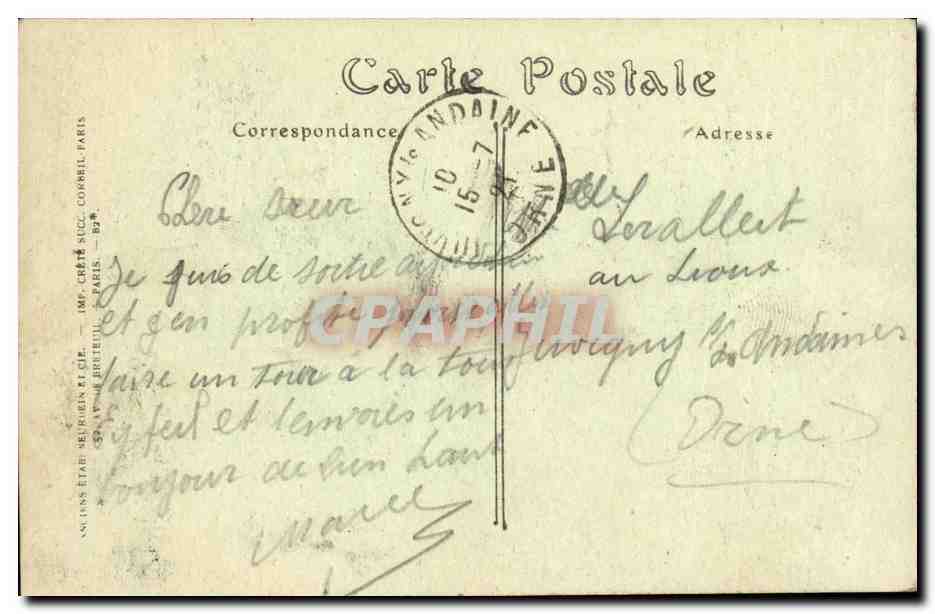 Carte Postale
Correspondance
Adresse
ANDAINE
10
15 -7
21
ORNE
Chère Sœur
Je suis de sortie
et j'en profite pour
faire un Tour a la tour
et t'envoies un
bonjour de bien haut
Marcel
Melle
au
Juvigny s/s Andaines
(Orne)
CPAPHIL
ANCIENS ETAB. NEURDEIN ET CIE. — IMP. CRÉTÉ SUCC. CORBEIL-PARIS
52, AV. DE BRETEUIL, PARIS. — B2*.